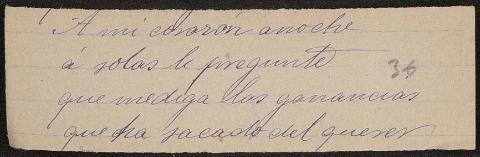 A mi corazón anoche
á solas le pregunté
36
que mediga las ganancias
que ha sacado del querer